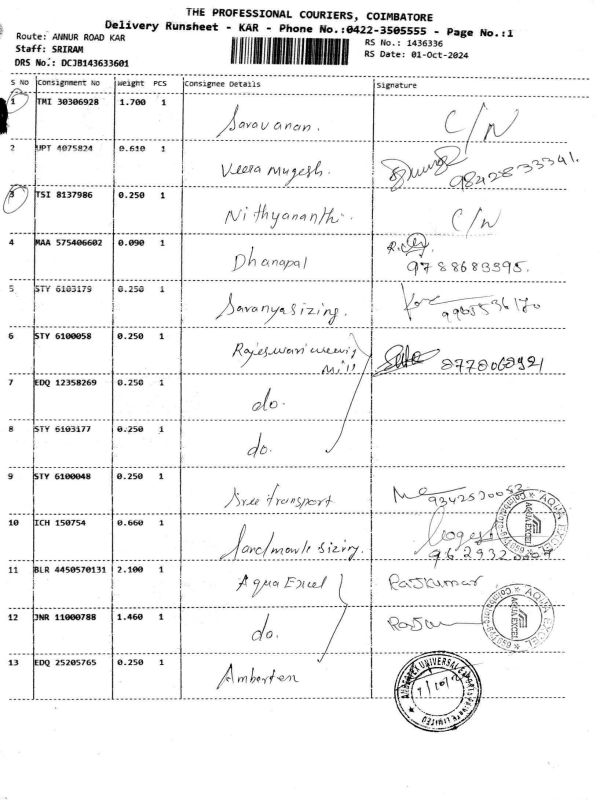 THE PROFESSIONAL COURIERS, COIMBATORE
Delivery Runsheet - KAR - Phone No.:0422-3505555 - Page No.:1
Route: ANNUR ROAD KAR
RS No.: 1436336
Staff: SRIRAM
RS Date: 01-Oct-2024
DRS No.: DCJB143633601
S No Consignment No Weight PCS Consignee Details Signature
1 TMI 30306928 1.700 1 Saravanan. C/N
2 UPT 4075824 0.610 1 Veera mugesh. 9842833341.
3 TSI 8137986 0.250 1 Nithyananthi. C/N
4 MAA 575406602 0.090 1 Dhanapal 9788683595.
5 STY 6103179 0.250 1 Saranya sizing.
6 STY 6100058 0.250 1 Rajeswari weevig mill
7 EDQ 12358269 0.250 1 do.
8 STY 6103177 0.250 1 do.
9 STY 6100048 0.250 1 Sree transport
10 ICH 150754 0.660 1 sizing.
11 BLR 4450570131 2.100 1 Aqua Excel Rajkumar
12 JNR 11000788 1.460 1 do.
13 EDQ 25205765 0.250 1 Amberten
AQUA EXCEL
AQUA EXCEL